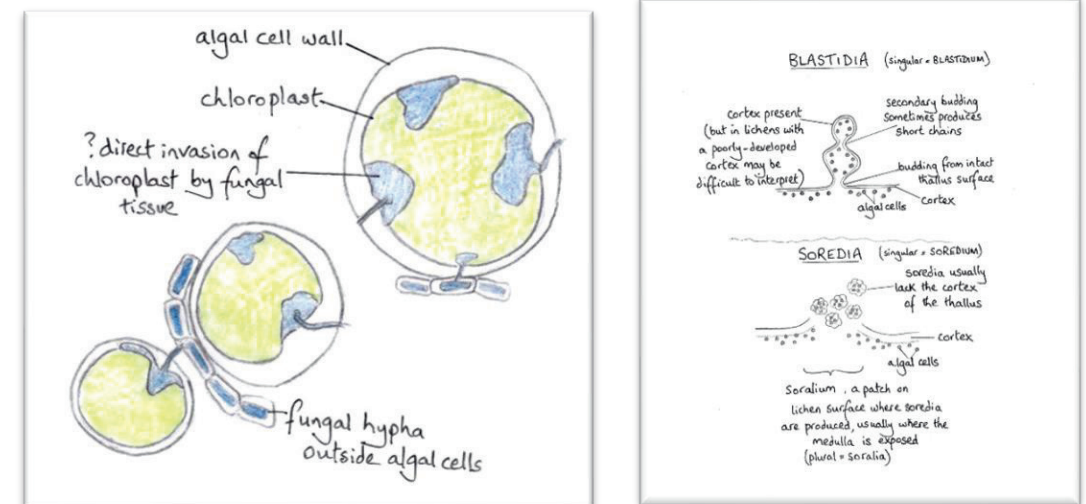 algal cell wall
chloroplast
? direct invasion of
chloroplast by fungal
tissue
fungal hypha
outside algal cells
BLASTIDIA (singular = BLASTIDIUM)
cortex present
(but in lichens with
a poorly-developed
cortex may be
difficult to interpret)
secondary budding
sometimes produces
short chains
budding from intact
thallus surface
cortex
algal cells
SOREDIA (singular = SOREDIUM)
soredia usually
lack the cortex
of the thallus
cortex
algal cells
Soralium, a patch on
lichen surface where soredia
are produced, usually where the
medulla is exposed
(plural = soralia)